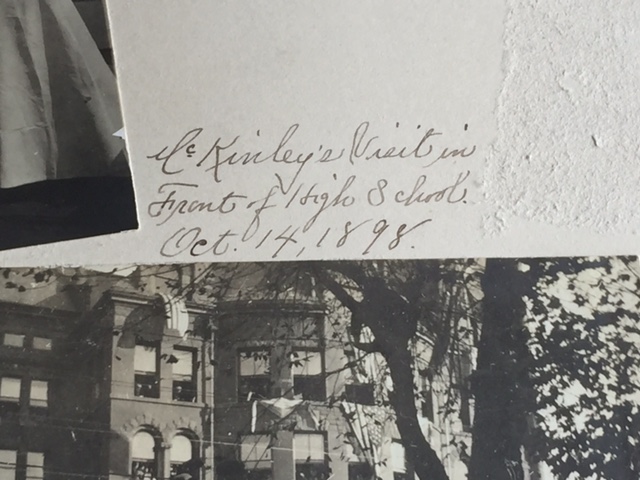 McKinley's Visit in
Front of High School.
Oct. 14, 1898.